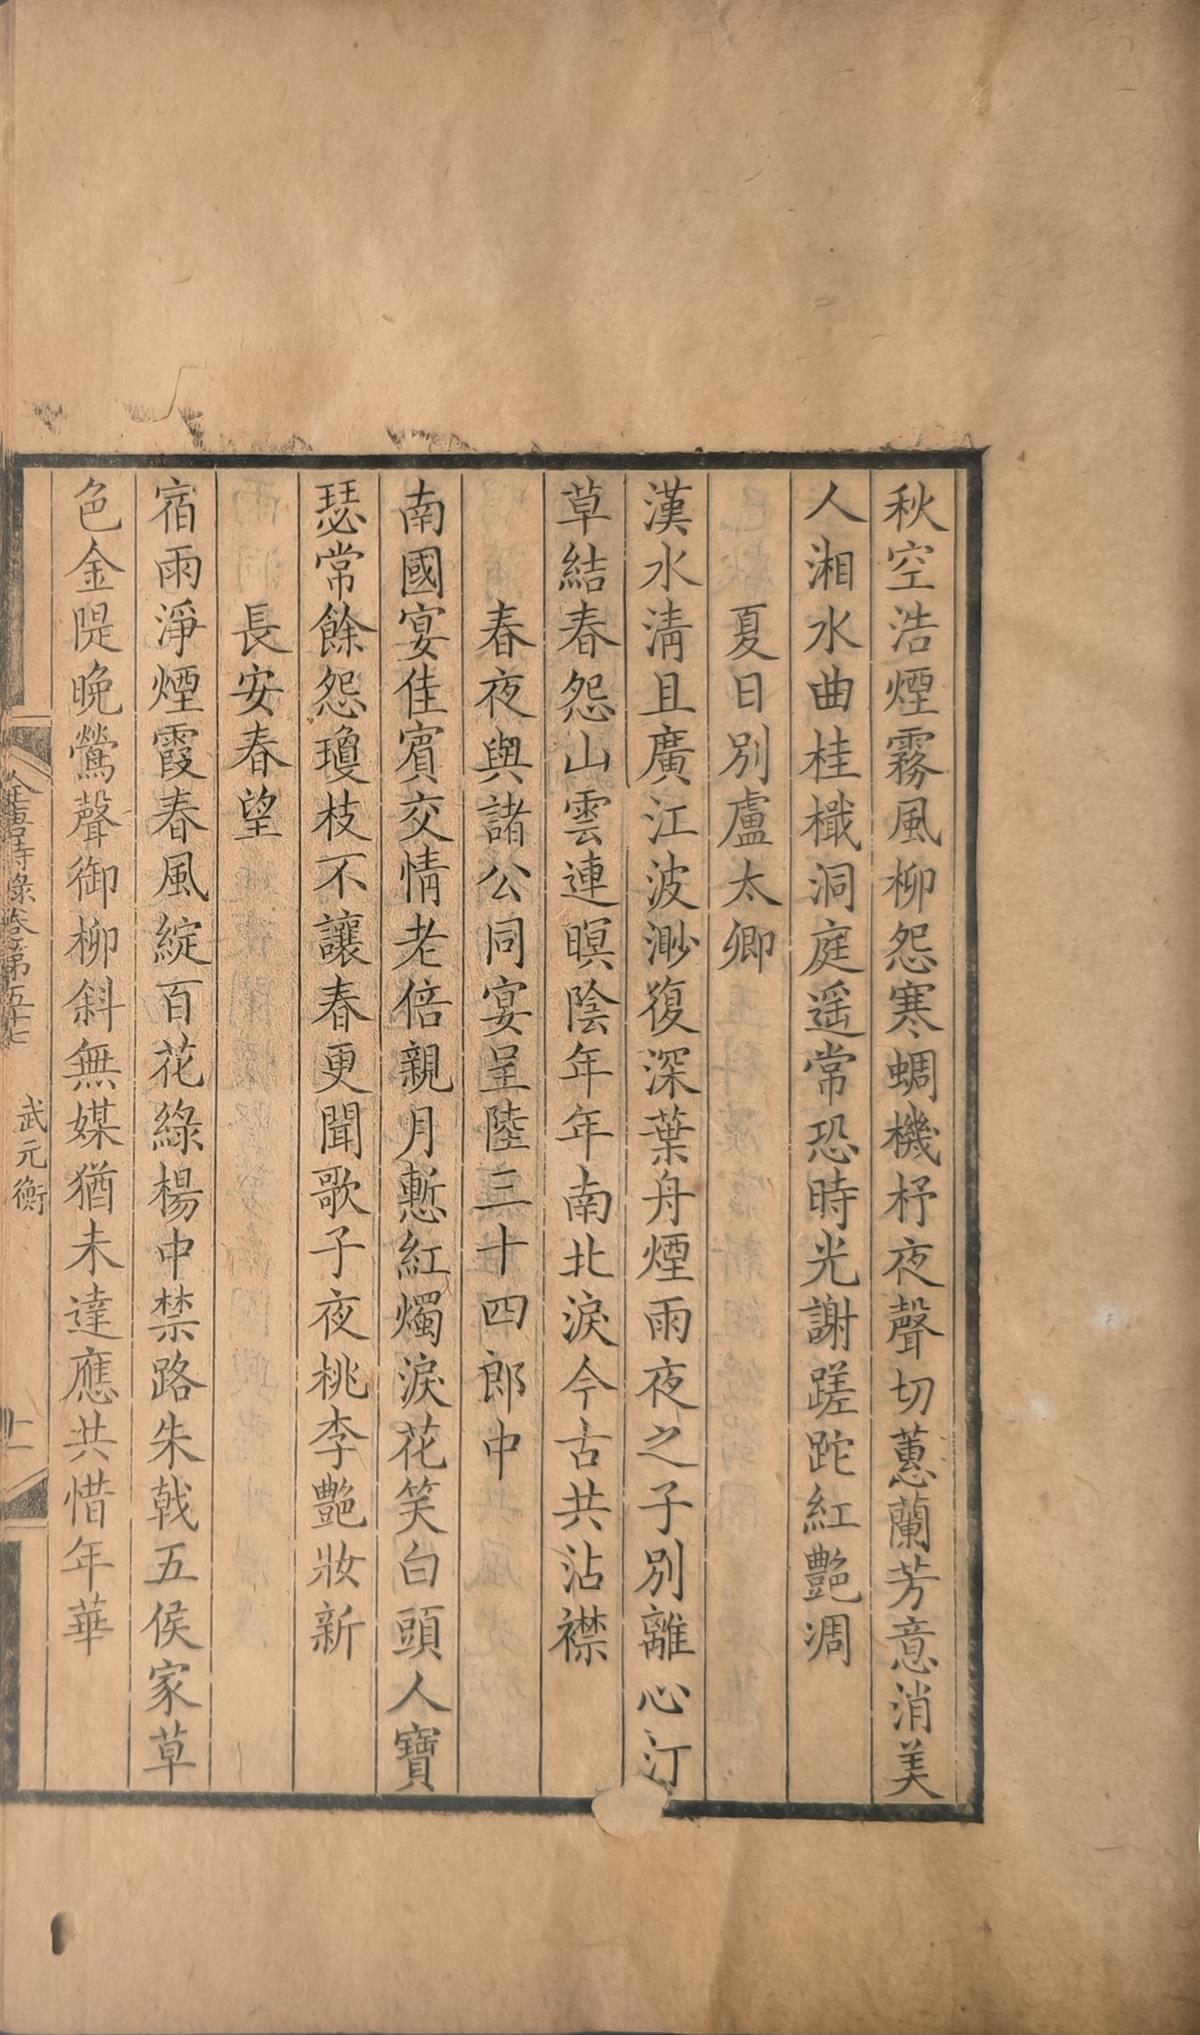 秋空浩煙霧風柳怨寒蜩機杼夜聲切蕙蘭芳意消美
人湘水曲桂檝洞庭遥常恐時光謝蹉跎紅艷凋
夏日別盧太卿
漢水淸且廣江波渺復深葉舟煙雨夜之子別離心汀
草結春怨山雲連暝陰年年南北淚今古共沾襟
春夜與諸公同宴呈陸三十四郎中
南國宴佳賓交情老倍親月慙紅燭淚花笑白頭人寶
瑟常餘怨瓊枝不讓春更聞歌子夜桃李艷妝新
長安春望
宿雨淨煙霞春風綻百花綠楊中禁路朱戟五侯家草
色金隄晚鶯聲御柳斜無媒猶未達應共惜年華
全唐詩錄卷第五十七
武元衡
十一